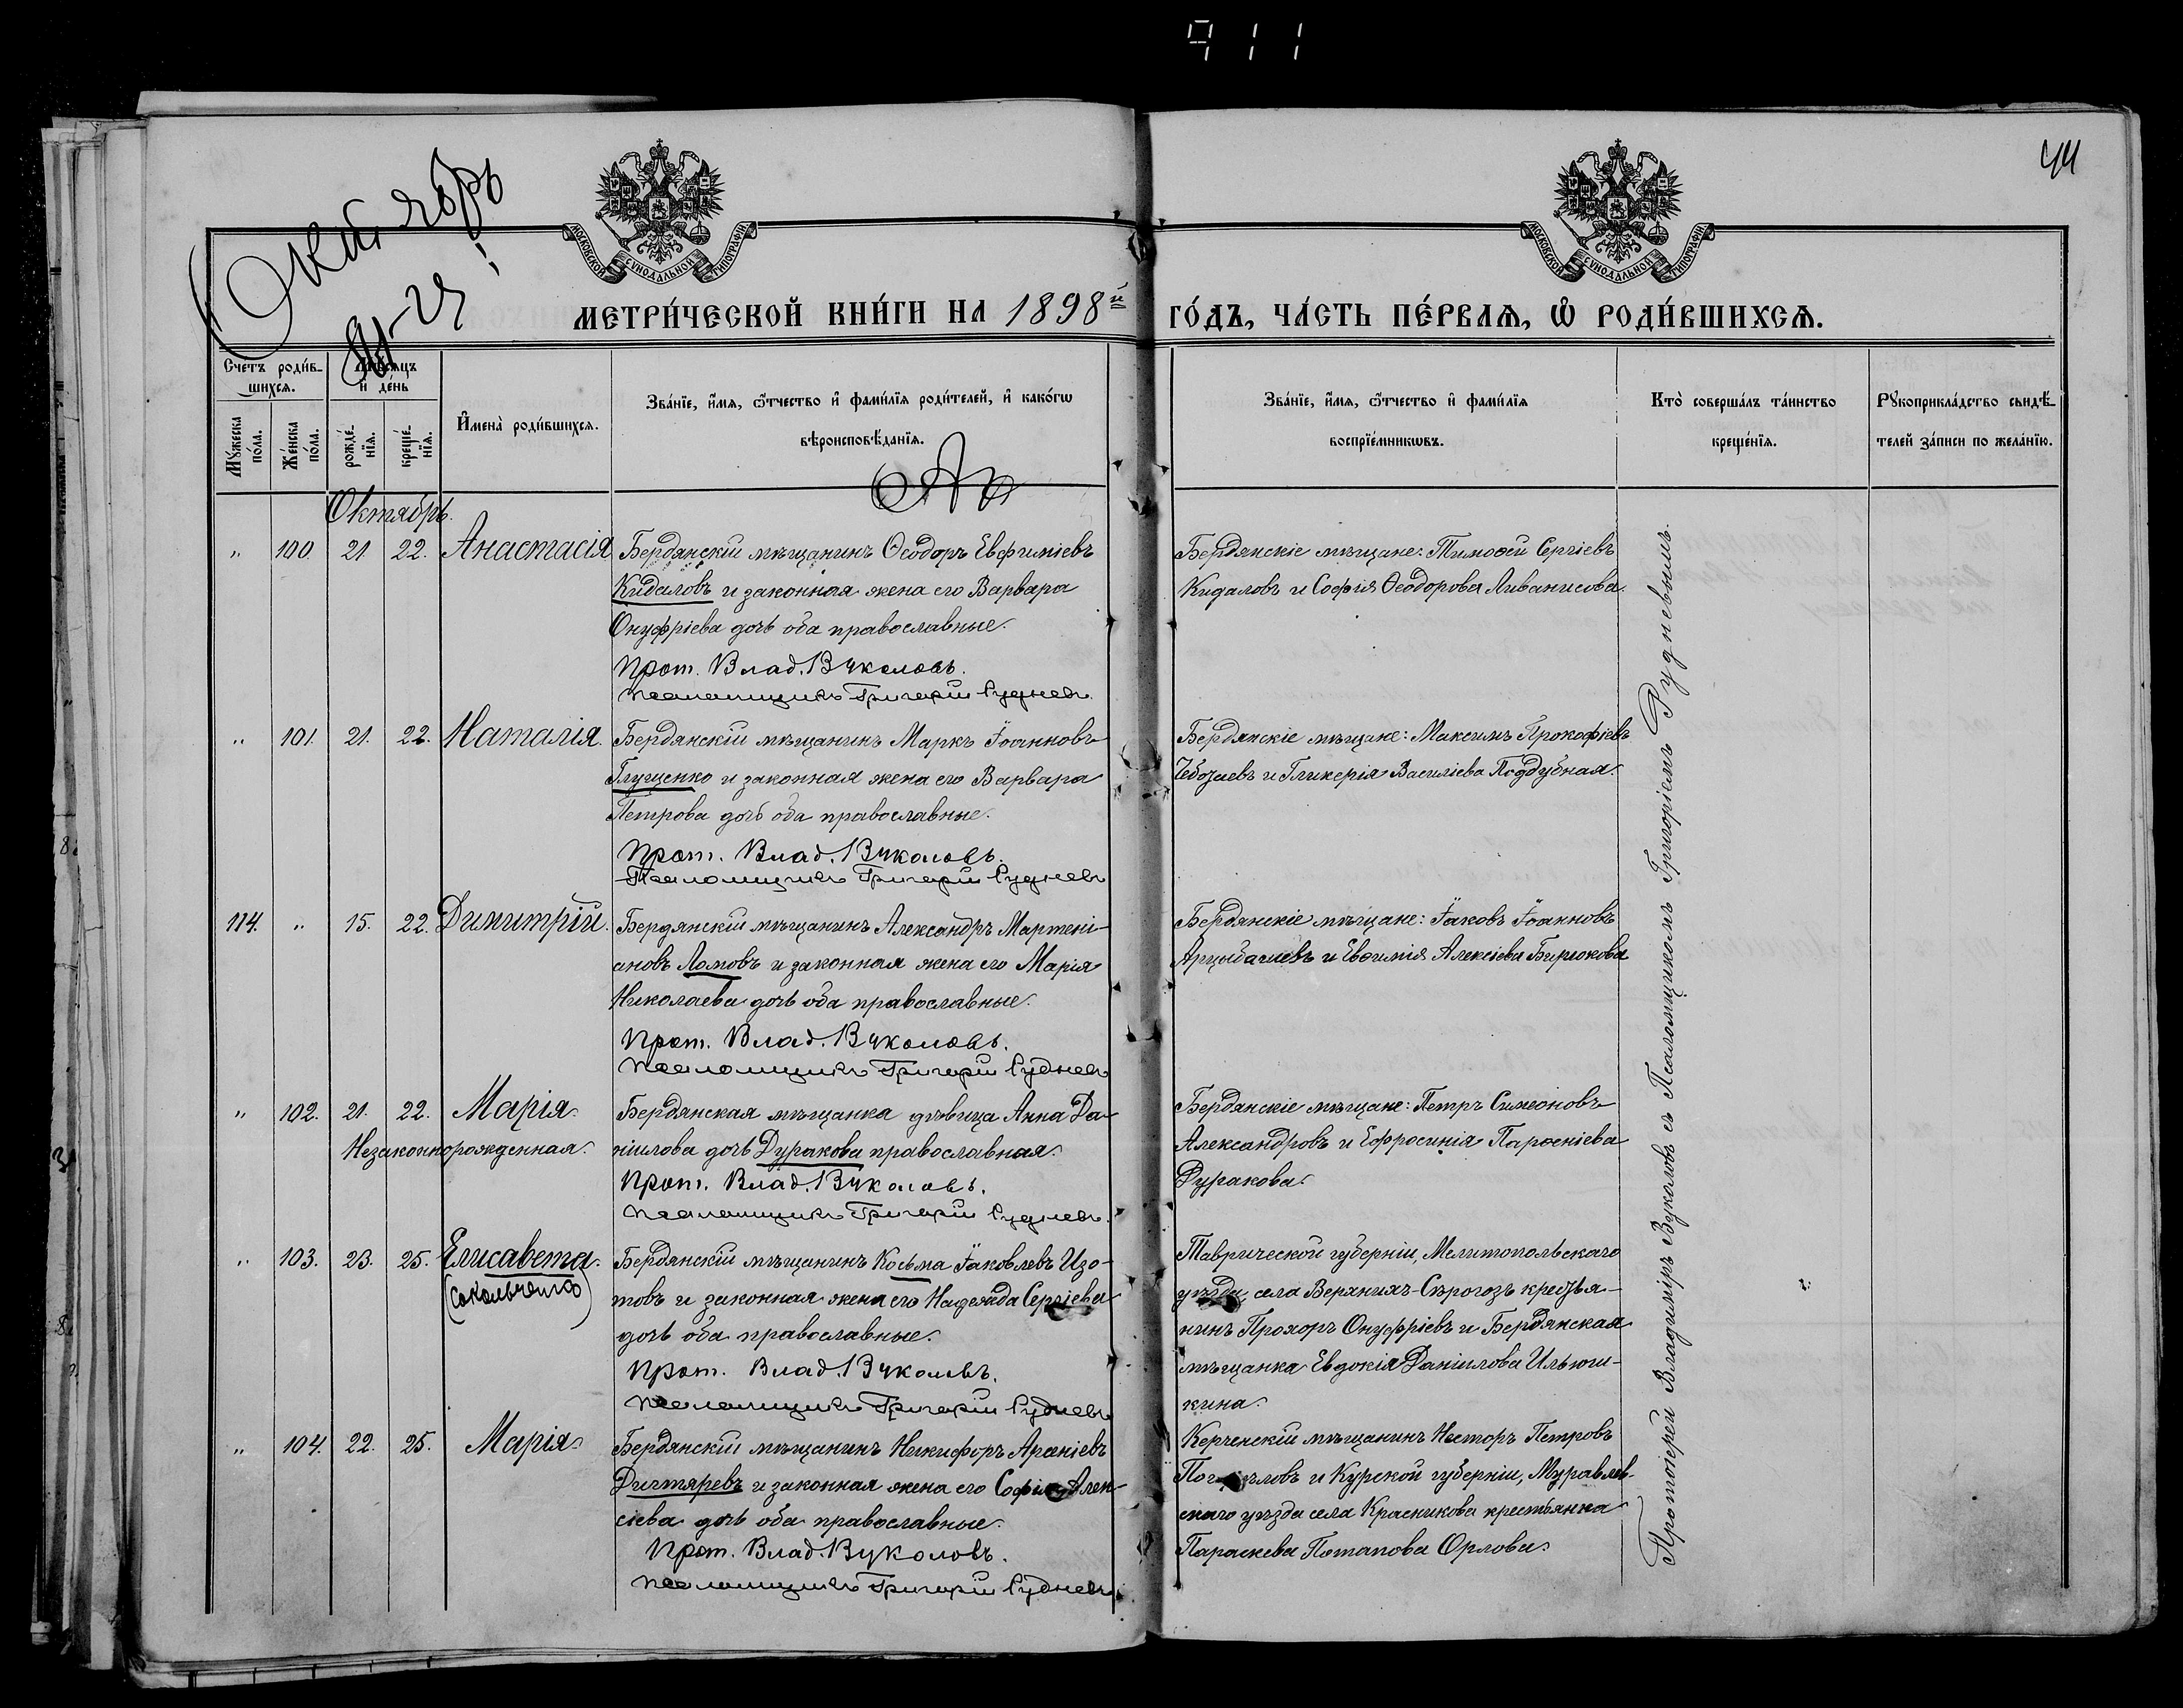 911
44
Октябрь
МОСКОВСКОЙ СУНОДАЛЬНОЙ ТИПОГРАФІИ
МОСКОВСКОЙ СУНОДАЛЬНОЙ ТИПОГРАФІИ
МЕТРИ́ЧЕСКОЙ КНИ́ГИ НА 1898й ГО́ДЪ, ЧА́СТЬ ПЕ́РВАѦ, Ѡ РОДИ́ВШИХСѦ.
Сче́тъ роди́в-
шихсѧ.
Мꙋ́жеска по́ла.
Же́нска по́ла.
Мѣ́сѧцъ
и де́нь
рожде́-
нїѧ.
креще́-
нїѧ.
И҆мена̀ роди́вшихсѧ.
Зва́нїе, и҆́мѧ, ѻ҆́тчество и҆ фами́лїѧ роди́телей, и҆ како́гѡ
вѣроисповѣ́данїѧ.
Зва́нїе, и҆́мѧ, ѻ҆́тчество и҆ фами́лїѧ
воспрїе́мникѡвъ.
Кто̀ соверша́лъ та́инство
креще́нїѧ.
Рꙋкоприкла́дство свидѣ́-
телей за́писи по жела́нїю.
Октябрь.
„ 100 21 22. Анастасія
Бердянскій мѣщанинъ Ѳеодоръ Евфиміевъ
Кидаловъ и законная жена его Варвара
Онуфріева дочь оба православные.
Прот. Влад. Вуколовъ.
Псаломщикъ Григорій Рудневъ
Бердянскіе мѣщане: Тимоѳей Сергіевъ
Кидаловъ и Софія Ѳеодорова Ливанисова.
„ 101. 21. 22. Наталія.
Бердянскій мѣщанинъ Маркъ Іоанновъ
Глущенко и законная жена его Варвара
Петрова дочь оба православные.
Прот. Влад. Вуколовъ.
Псаломщикъ Григорій Рудневъ
Бердянскіе мѣщане: Максимъ Прокофіевъ
и Гликерія Василіева Поддубная.
114. „ 15. 22. Димитрій.
Бердянскій мѣщанинъ Александръ Мартині-
ановъ Ломовъ и законная жена его Марія
Николаева дочь оба православные.
Прот. Влад. Вуколовъ.
Псаломщикъ Григорій Рудневъ
Бердянскіе мѣщане: Іаковъ Іоанновъ
Арцыбашевъ и Евѳимія Алексіева Бирюкова
„ 102. 21. 22. Марія
Незаконнорожденная.
Бердянская мѣщанка дѣвица Анна Да-
ніилова дочь Дуракова православная.
Прот. Влад. Вуколовъ.
Псаломщикъ Григорій Рудневъ.
Бердянскіе мѣщане: Петръ Симеоновъ
Александровъ и Ефросинія Парѳеніева
Дуракова.
„ 103. 23. 25. Елисавета.
Бердянскій мѣщанинъ Косьма Іаковлевъ Изо-
товъ и законная жена его Надежда Сергіева
дочь оба православные.
Прот. Влад. Вуколовъ.
Псаломщикъ Григорій Рудневъ
Таврической губерніи, Мелитопольскаго
уѣзда, села Верхнихъ-Сѣрогозъ крестья-
нинъ Прохоръ Онуфріевъ и Бердянская
мѣщанка Евдокія Даніилова Ильюш-
кина.
„ 104. 22. 25. Марія
Бердянскій мѣщанинъ Никифоръ Арсеніевъ
Дигтяревъ и законная жена его Софія Алек-
сіева дочь оба православные.
Прот. Влад. Вуколовъ.
Псаломщикъ Григорій Рудневъ
Керченскій мѣщанинъ Несторъ Петровъ
и Курской губерніи,
скаго уѣзда села Красникова крестьянка
Параскева Потапова Орлова.
Протоіерей Владиміръ Вуколовъ съ Псаломщикомъ Григоріемъ Рудневымъ.